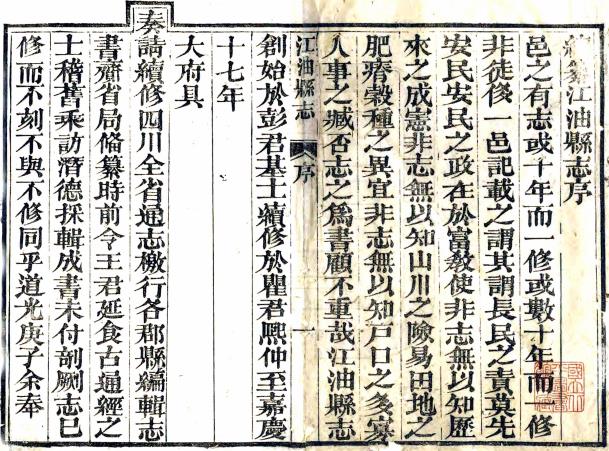 續纂江油縣志序
邑之有志或十年而一修或數十年而一修
非徒後一邑記載之謂其謂長民之責莫先
安民安民之政在於富敎使非志無以知歷
來之成憲非志無以知山川之險易田地之
肥瘠穀種之異宜非志無以知戶口之多寡
人事之臧否志之爲書顧不重哉江油縣志
江油縣志 序 一
創始於彭君基士續修於瞿君熙仲至嘉慶
十七年
大府具
奏請續修四川全省通志檄行各郡縣編輯志
書齎省局俻纂時前令王君延食古通經之
士稽舊乘訪潛德採輯成書未付剞劂志已
修而不刻不與不修同乎道光庚子余奉